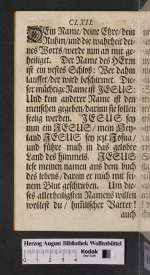 CLXII.
DEin Name/ deine Ehre/ dein
Ruhm/ und die wahrheit dei-
nes Worts werde nun an mir ge-
heiliget. Der Name des HErrn
ist ein vestes Schloß: Wer dahin
laufft/ der wird beschirmt. Die-
ser mächtige Name ist JESUS:
Und kein anderer Name ist den
menschen gegeben/ darinn sie sollen
seelig werden. JESUS sey
nun ein JESUS/ mein Hey-
land JESUS sey jezt Josua/
und führe mich in das gelobte
Land des himmels. JESUS
lese meinen namen aus dem buch
des lebens/ darein er mich mit sei-
nem Blut geschrieben. Um die-
ses allerheiligsten Namens willen
wollest du/ himmlischer Vatter!
auch
Herzog August Bibliothek Wolfenbüttel